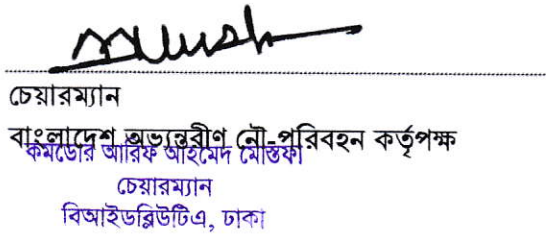 চেয়ারম্যান
বাংলাদেশ অভ্যন্তরীণ নৌ-পরিবহন কর্তৃপক্ষ
কমডোর আরিফ আহমেদ মোস্তফা
চেয়ারম্যান
বিআইডব্লিউটিএ, ঢাকা